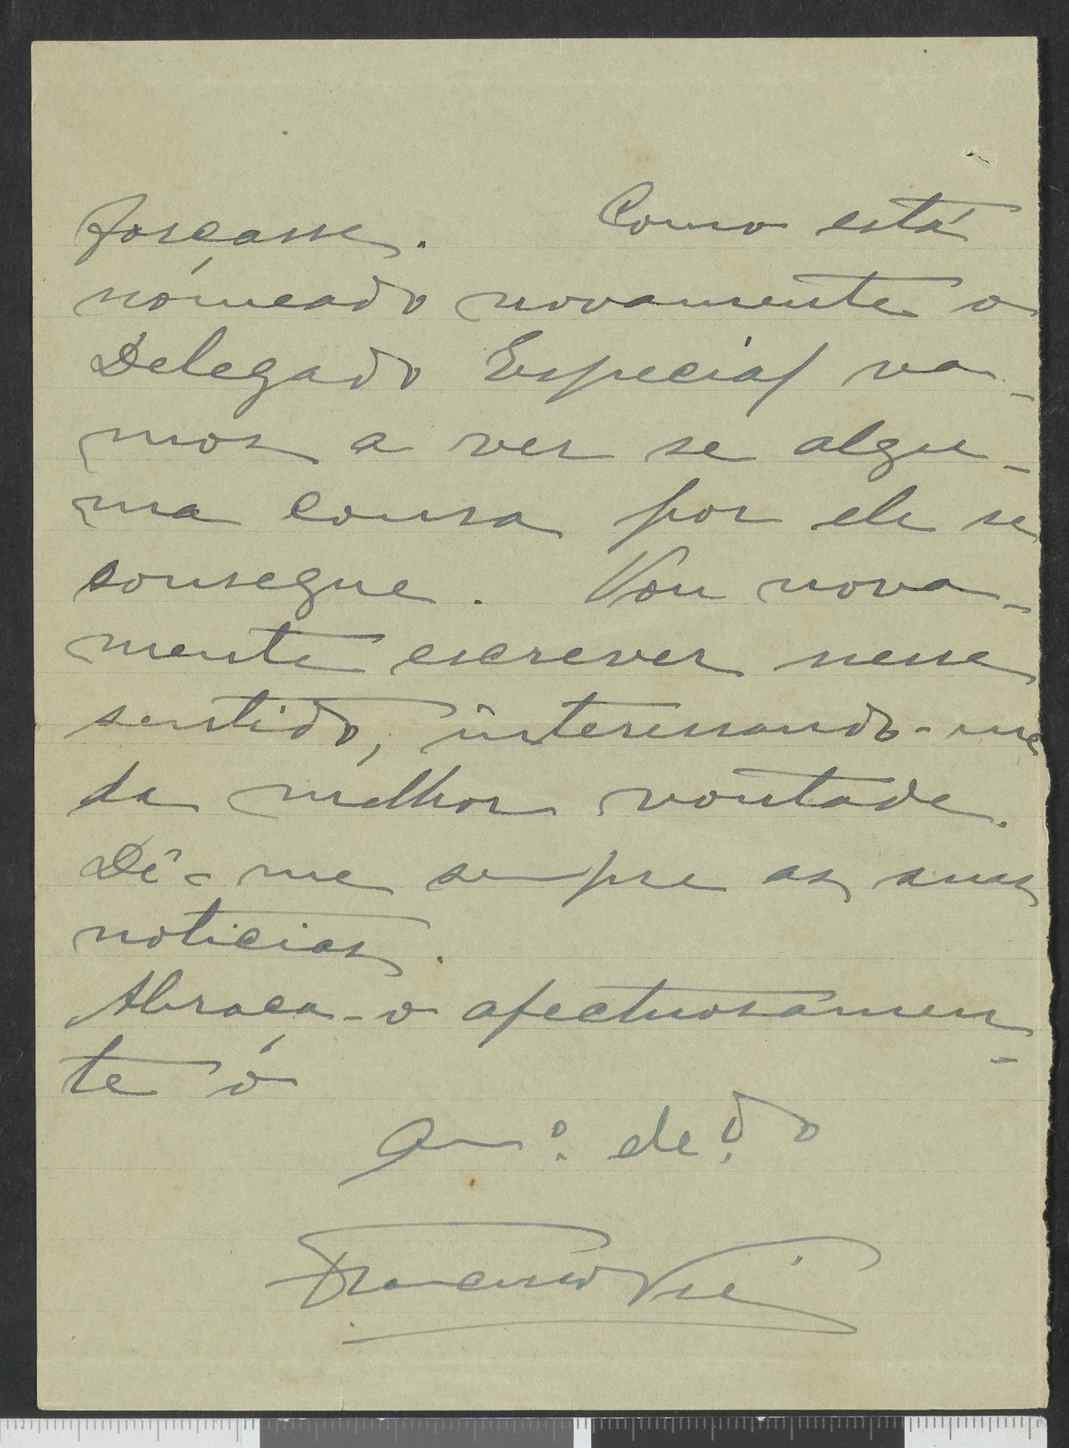 forçasse. Como está
nomeado novamente o
Delegado Especial va-
mos a ver se algu-
ma cousa por ele se
consegue. Vou nova-
mente escrever nesse
sentido, interessando-me
da melhor vontade.
Dê-me sempre as suas
noticias.
Abraça-o afectuosamen-
te o
Amº. dedº
Francisco